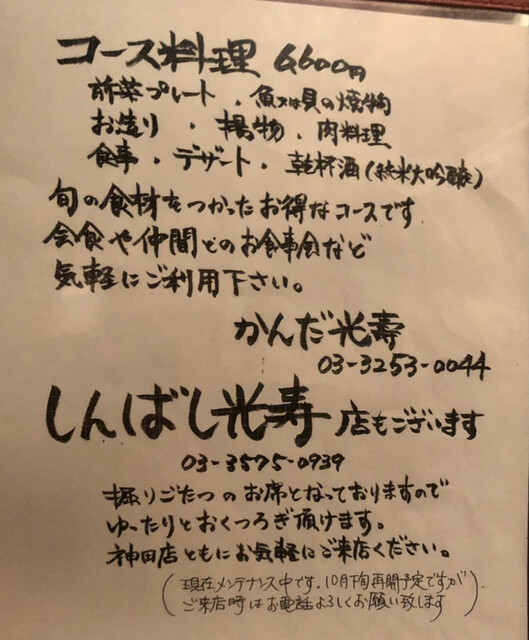 コース料理 6,600円
前菜プレート・魚又は貝の焼物
お造り・揚物・肉料理
食事・デザート・乾杯酒(純米大吟醸)
旬の食材をつかったお得なコースです
会食や仲間とのお食事会など
気軽にご利用下さい。
かんだ光壽
03-3253-0044
しんばし光寿店もございます
03-3575-0939
掘りごたつのお席となっておりますので
ゆったりとおくつろぎ頂けます。
神田店ともにお気軽にご来店ください。
(現在メンテナンス中です。10月下旬再開予定ですが
ご来店時はお電話よろしくお願い致します)